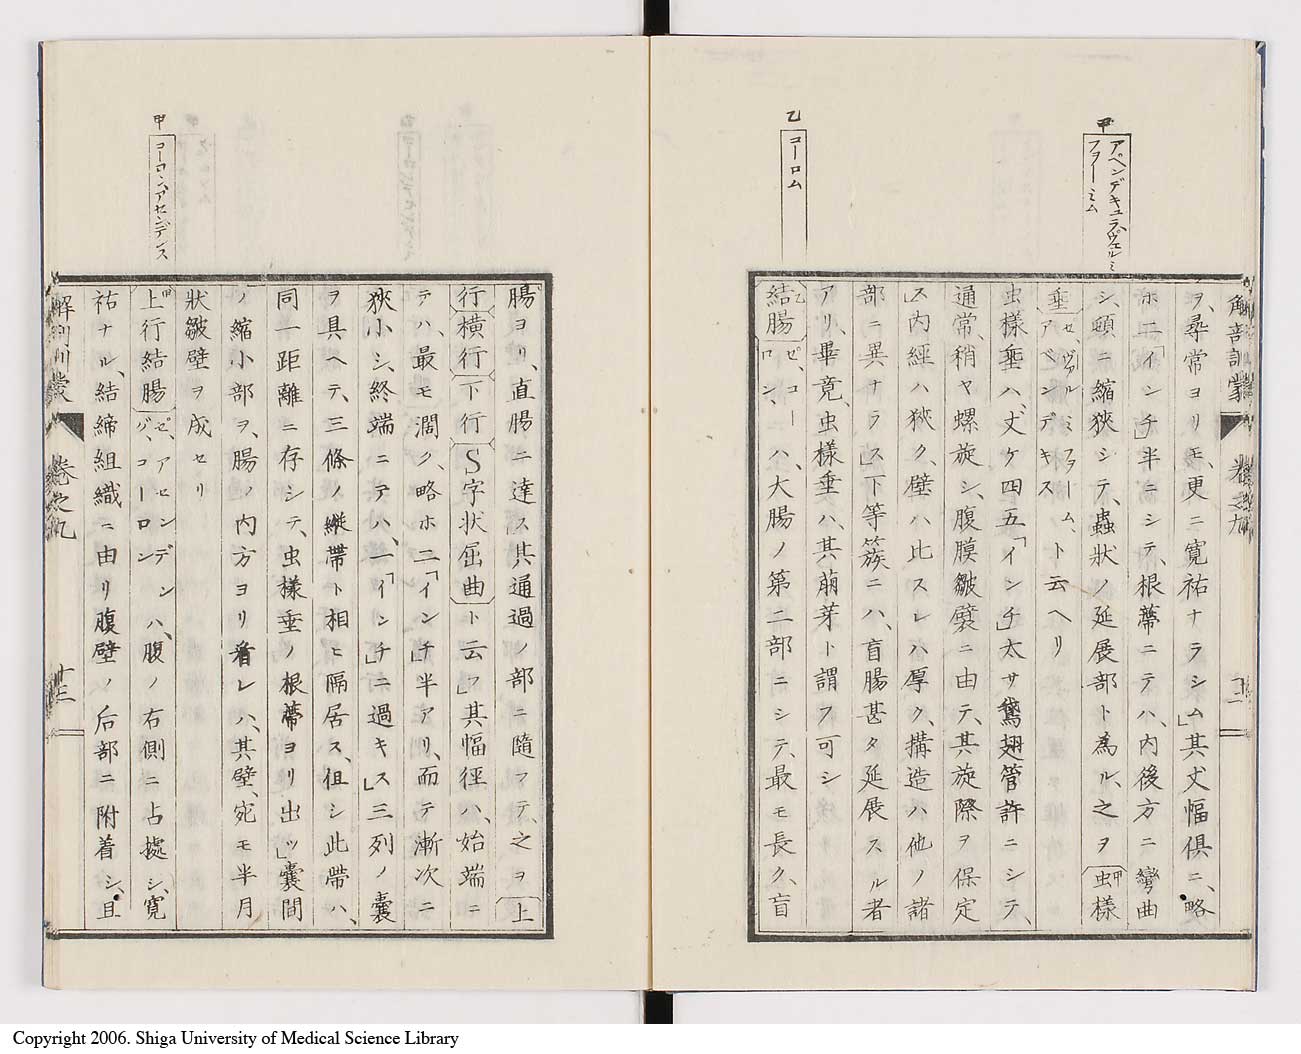 甲
アペンデキュラヴェルミ
ファーミム
乙
コーロム
解剖訓蒙
卷之九
十二
ヲ、尋常ヨリモ、更ニ寛祐ナラシム」其丈幅倶ニ、略
ホ二「インチ」半ニシテ、根蔕ニテハ、内後方ニ彎曲
シ、頓ニ縮狹シテ、蟲狀ノ延展部ト為ル、之ヲ虫樣
垂ゼ、ヴァルミファーム、アペンデキスト云ヘリ
虫樣垂ハ、丈ケ四五「インチ」太サ鵞翅管許ニシテ、
通常、稍ヤ螺旋シ、腹膜皺襞ニ由テ、其旋際ヲ保定
ス」内經ハ狹ク、壁ハ比スレハ厚ク、搆造ハ他ノ諸
部ニ異ナラス」下等簇ニハ、盲腸甚タ延展スル者
アリ、畢竟、虫樣垂ハ、其萠芽ト謂フ可シ
結腸ゼ、コーロン、ハ、大腸ノ第二部ニシテ、最モ長ク、盲
甲
コーロン、アセンデンス
腸ヨリ、直腸ニ達ス其通過ノ部ニ隨フテ、之ヲ上
行横行下行S字狀屈曲ト云フ」其幅徑ハ、始端ニ
テハ、最モ濶ク、略ホ二「インチ」半アリ、而テ漸次ニ
狹小シ、終端ニテハ、一「インチ」ニ過キス」三列ノ嚢
ヲ具ヘテ、三條ノ縱帶ト相ヒ隔居ス、但シ此帶ハ、
同一距離ニ存シテ、虫樣垂ノ根蔕ヨリ出ツ」嚢間
ノ縮小部ヲ、腸ノ内方ヨリ看レハ、其壁、宛モ半月
狀皺壁ヲ成セリ
上行結腸ゼ、アセンデンバ、コーロンハ、腹ノ右側ニ占據シ、寛
祐ナル、結締組織ニ由リ腹壁ノ后部ニ附着シ、且
解剖訓蒙
卷之九
十三
Copyright 2006. Shiga University of Medical Science Library